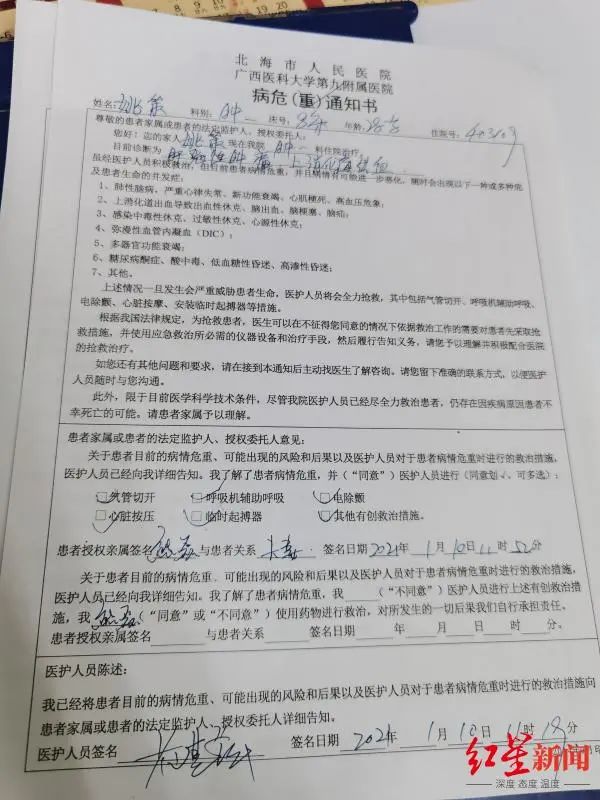 北海市人民医院
广西医科大学第九附属医院
病危（重）通知书
姓名：姚策 科别：肿一 床号： 年龄： 住院号：403109
尊敬的患者家属或患者的法定监护人、授权委托人：
您好！您的家人姚策现在我院肿一科住院治疗。
目前诊断为
虽经医护人员积极救治，但目前患者病情危重，并且病情有可能进一步恶化，随时会出现以下一种或多种危
及患者生命的并发症：
1、肺性脑病，严重心律失常、新功能衰竭、心肌梗死、高血压危象；
2、上消化道出血导致出血性休克、脑出血、脑梗塞、脑疝；
3、感染中毒性休克、过敏性休克、心源性休克；
4、弥漫性血管内凝血（DIC）；
5、多器官功能衰竭；
6、糖尿病酮症、酸中毒、低血糖性昏迷、高渗性昏迷；
7、其他。
上述情况一旦发生会严重威胁患者生命，医护人员将会全力抢救，其中包括气管切开、呼吸机辅助呼吸、
电除颤、心脏按摩、安装临时起搏器等措施。
根据我国法律规定，为抢救患者，医生可以在不征得您同意的情况下依据救治工作的需要对患者先采取抢
救措施，并使用应急救治所必需的仪器设备和治疗手段，然后履行告知义务，请您予以理解并积极配合医院
的抢救治疗。
如您还有其他问题和要求，请在接到本通知后主动找医生了解咨询。请您留下准确的联系方式，以便医护
人员随时与您沟通。
此外，限于目前医学科学技术条件，尽管我院医护人员已经尽全力救治患者，仍存在因疾病原因患者不
幸死亡的可能。请患者家属予以理解。
患者家属或患者的法定监护人、授权委托人意见：
关于患者目前的病情危重、可能出现的风险和后果以及医护人员对于患者病情危重时进行的救治措施，
医护人员已经向我详细告知。我了解了患者病情危重，并（“同意”）医护人员进行（同意划√、可多选）：
□气管切开 □呼吸机辅助呼吸 □电除颤
□心脏按压 □临时起搏器 □其他有创救治措施。
患者授权亲属签名 与患者关系 签名日期2021年1月10日11时52分
关于患者目前的病情危重、可能出现的风险和后果以及医护人员对于患者病情危重时进行的救治措施，
医护人员已经向我详细告知。我了解了患者病情危重，我（“不同意”）医护人员进行上述有创救治措
施，我（“同意”或“不同意”）使用药物进行救治，对所发生的一切后果我们自行承担责任。
患者授权亲属签名 与患者关系 签名日期 年 月 日 时 分。
医护人员陈述：
我已经将患者目前的病情危重、可能出现的风险和后果以及医护人员对于患者病情危重时进行的救治措施向
患者家属或患者的法定监护人、授权委托人详细告知。
医护人员签名 签名日期2021年1月10日11时18分
红星新闻
深度 态度 温度